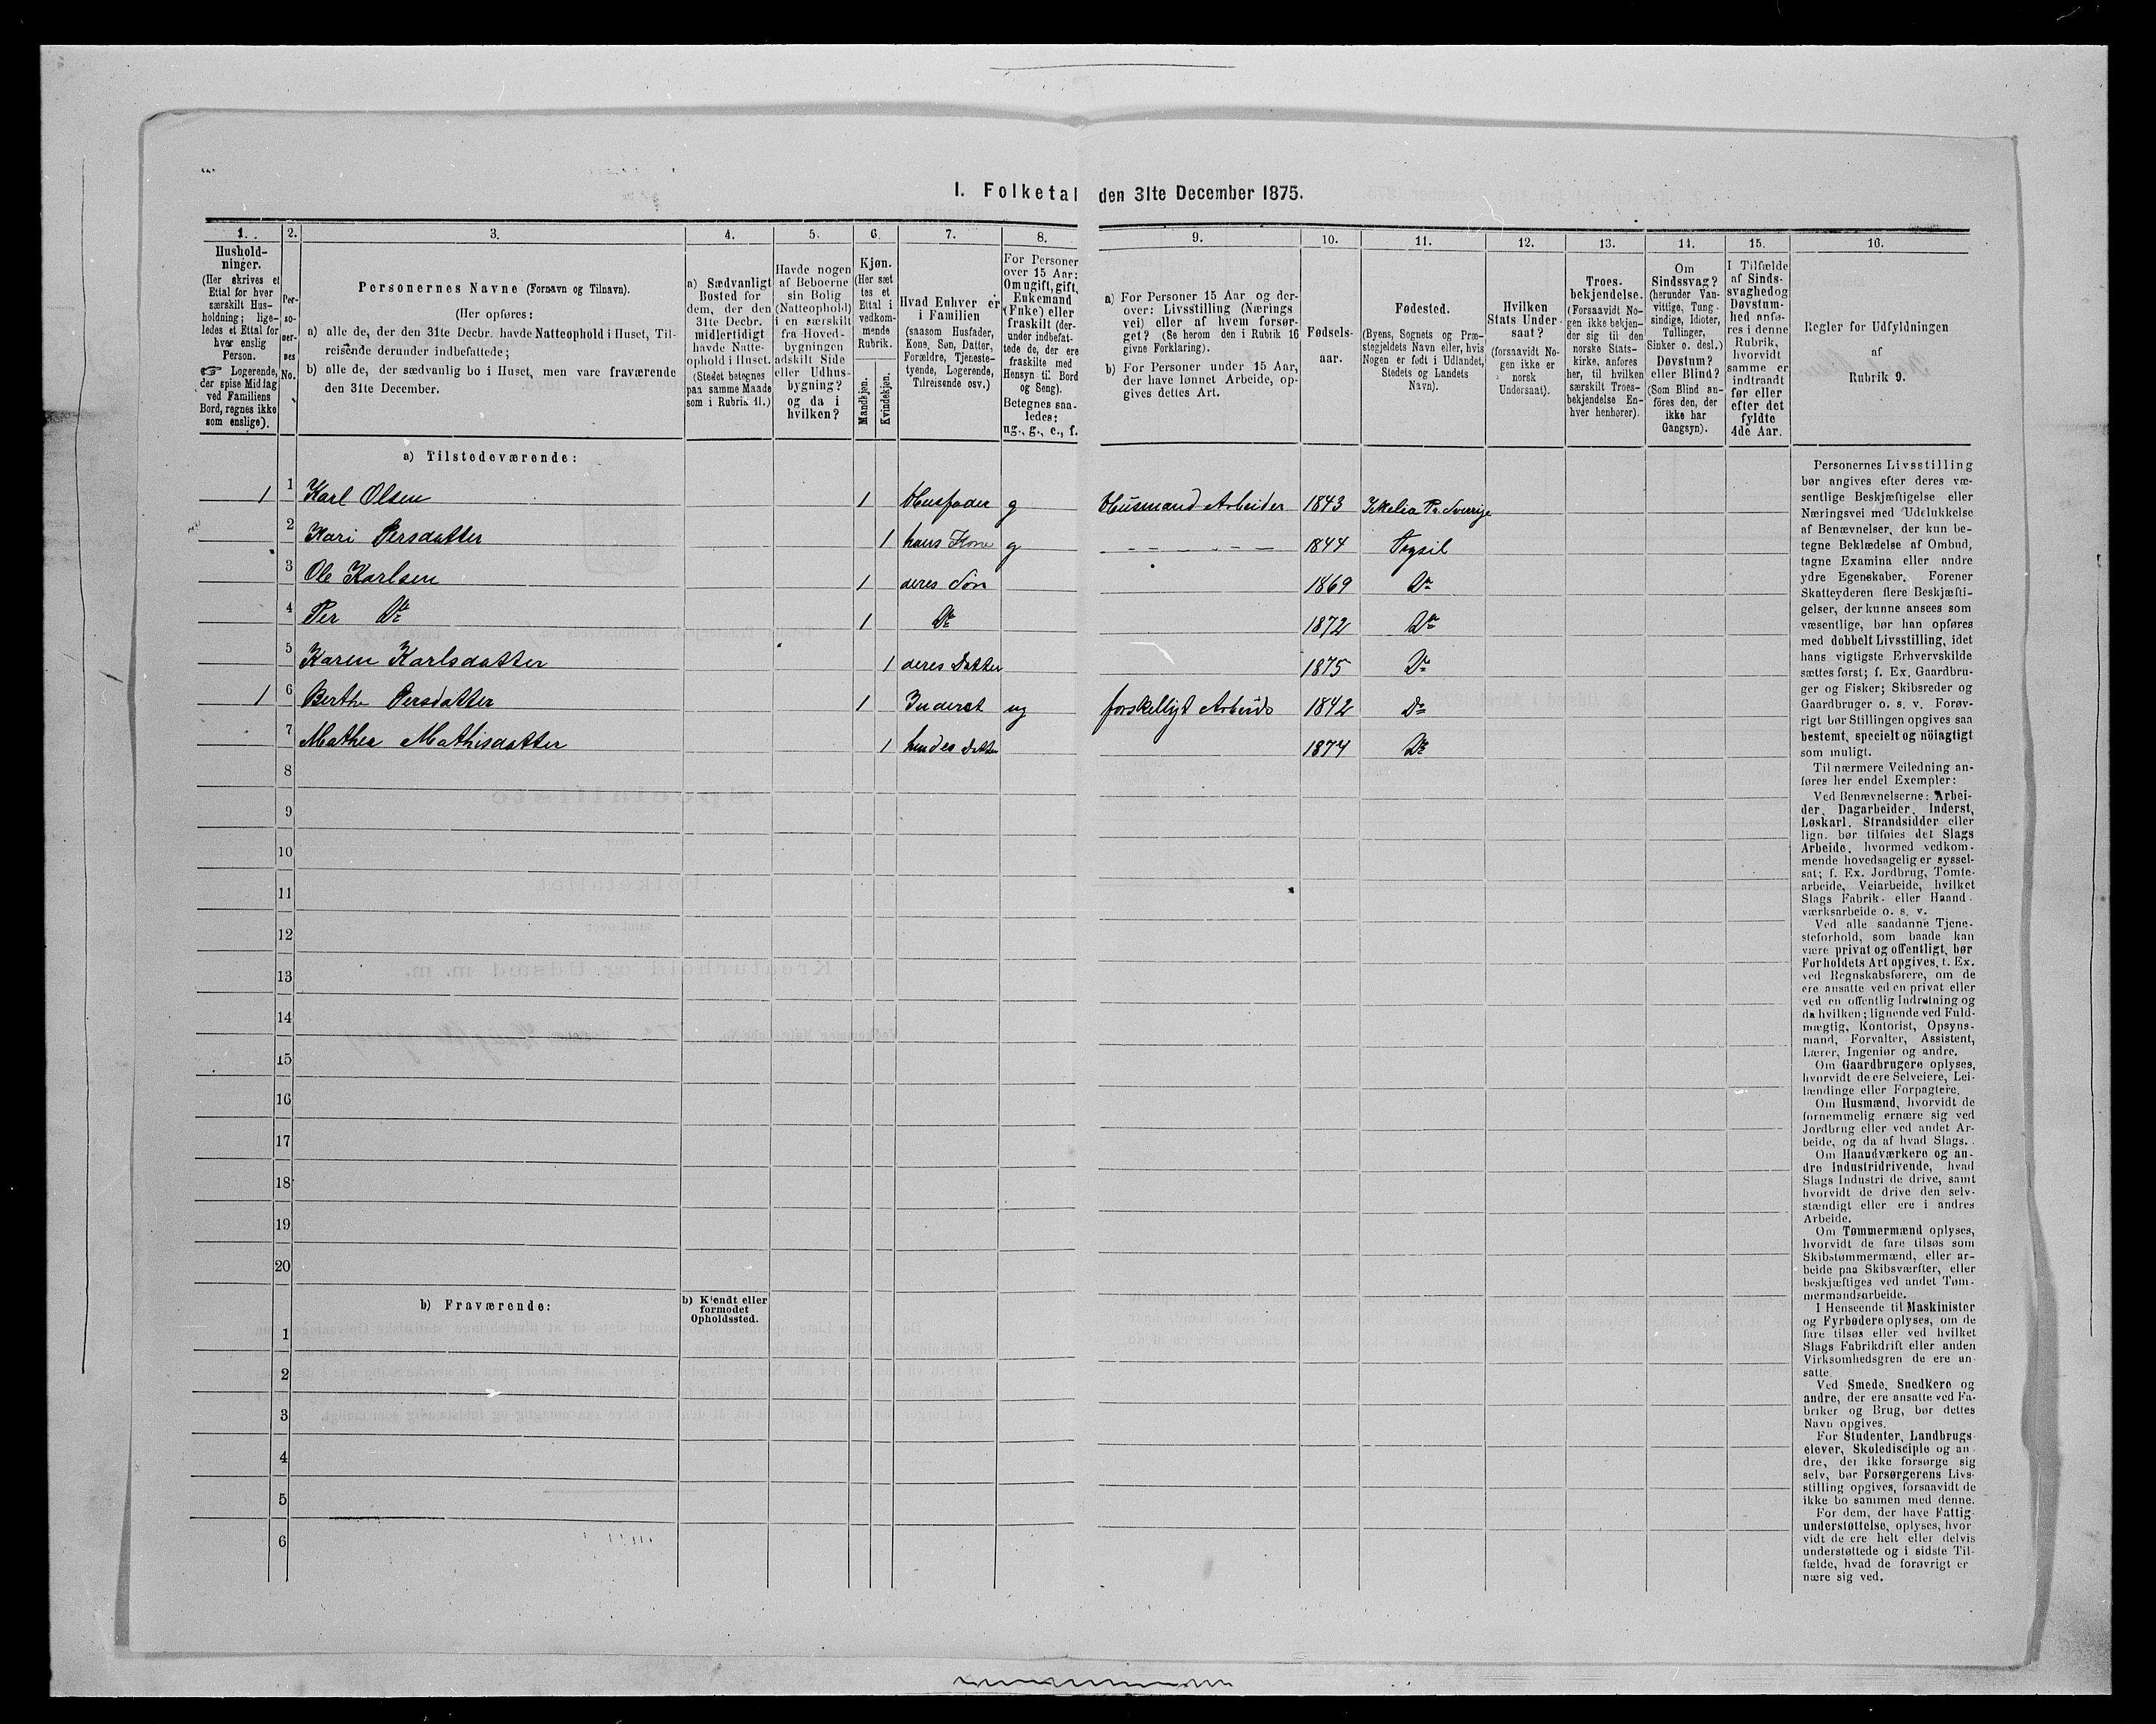 I. Folketal den 31te December 1875.
1. 2. 3. 4. 5. 6. 7. 8. 9. 10. 11. 12. 13. 14. 15. 16.
Hushold-
ninger.
(Her skrives et
Ettal for hver
særskilt Hus-
holdning; lige-
ledes et Ettal for
hver enslig
Person.
☞ Logerende,
der spise Middag
ved Familiens
Bord, regnes ikke
som enslige).
Per-
so-
nernes
No.
Personernes Navne (Fornavn og Tilnavn).
(Her opføres:
a) alle de, der den 31te Decbr. havde Natteophold i Huset, Til-
reisende derunder indbefattede;
b) alle de, der sædvanlig bo i Huset, men vare fraværende
den 31te December.
a) Sædvanligt
Bosted for
dem, der den
31te Decbr.
midlertidigt
havde Natte-
ophold i Huset.
(Stedet betegnes
paa samme Maade
som i Rubrik 11.)
Havde nogen
af Beboerne
sin Bolig
(Natteophold)
i en særskilt
fra Hoved-
bygningen
adskilt Side
eller Udhus-
bygning?
og da i
hvilken?
Kjøn.
(Her sæt
tes et
Ettal i
vedkom-
mende
Rubrik.
Mandkjøn.
Kvindekjøn.
Hvad Enhver er
i Familien
(saasom Husfader,
Kone, Søn, Datter,
Forældre, Tjeneste-
tyende, Logerende,
Tilreisende osv.)
For Personer
over 15 Aar:
Om ugift, gift,
Enkemand
(Enke) eller
fraskilt (der-
under indbefat-
tede de, der ere
fraskilte med
Hensyn til Bord
og Seng).
Betegnes saa-
ledes:
ug., g., e., f.
a) For Personer 15 Aar og der-
over: Livsstilling (Nærings
vei) eller af hvem forsør-
get? (Se herom den i Rubrik 16
givne Forklaring).
b) For Personer under 15 Aar,
der have lønnet Arbeide, op-
gives dettes Art.
Fødsels-
aar.
Fødested.
(Byens, Sognets og Præ-
stegjeldets Navn eller, hvis
Nogen er født i Udlandet,
Stedets og Landets
Navn).
Hvilken
Stats Under-
saat?
(forsaavidt No-
gen ikke er
norsk
Undersaat).
Troes-
bekjendelse.
(Forsaavidt No-
gen ikke bekjen-
der sig til den
norske Stats-
kirke, anføres
her, til hvilken
særskilt Troes-
bekjendelse En-
hver henhører).
Om
Sindssvag?
(herunder Van-
vittige, Tung-
sindige, Idioter,
Tullinger,
Sinker o. desl.)
Døvstum?
eller Blind?
(Som Blind an-
föres den, der
ikke har
Gangsyn).
I Tilfælde
af Sinds-
svaghed og
Døvstum-
hed anfø-
res i denne
Rubrik,
hvorvidt
samme er
indtraadt
før eller
efter det
fyldte
4de Aar.
Regler for Udfyldningen
af
Rubrik 9.
a) Tilstedeværende:
1 1 Karl Olsen 1 Husfader g Husmand Arbeider 1843 Ekelia Pr. Sverrige
2 Kari Persdatter 1 hans Kone g 1844 Trysil
3 Ole Karlsen 1 deres Søn 1869 Do
4 Per Do 1 Do 1872 Do
5 Karen Karlsdatter 1 deres Datter 1875 Do
1 6 Berthe Persdatter 1 Inderst ug forskelligt Arbeide 1842 Do
7 Mathea Mathisdatter 1 hendes Datter 1874 Do
8
9
10
11
12
13
14
15
16
17
18
19
20
b) Fraværende:
b) Kjendt eller
formodet
Opholdssted.
1
2
3
4
5
6
Personernes Livsstilling
bør angives efter deres væ-
sentlige Beskjæftigelse eller
Næringsvei med Udelukkelse
af Benævnelser, der kun be-
tegne Beklædelse af Ombud,
tagne Examina eller andre
ydre Egenskaber. Forener
Skatteyderen flere Beskjæfti-
gelser, der kunne ansees som
væsentlige, bør han opføres
med dobbelt Livsstilling, idet
hans vigtigste Erhvervskilde
sættes først; f. Ex. Gaardbru-
ger og Fisker; Skibsreder og
Gaardbruger o. s. v. Forøv-
rigt bør Stillingen opgives saa
bestemt, specielt og nöiagtigt
som muligt.
Til nærmere Veiledning an-
føres her endel Exempler:
Ved Benævnelserne: Arbei-
der, Dagarbeider, Inderst,
Løskarl, Strandsidder eller
lign. bør tilføies det Slags
Arbeide, hvormed vedkom-
mende hovedsagelig er syssel-
sat; f. Ex. Jordbrug, Tomte-
arbeide, Veiarbeide, hvilket
Slags Fabrik- eller Haand-
værksarbeide o. s. v.
Ved alle saadanne Tjene-
steforhold, som baade kan
være privat og offentligt, bør
Forholdets Art opgives, t. Ex.
ved Regnskabsførere, om de
ere ansatte ved en privat eller
ved en offentlig Indretning og
da hvilken; lignende ved Fuld-
mægtig, Kontorist, Opsyns-
mand, Forvalter, Assistent,
Lærer, Ingeniør og andre.
Om Gaardbrugere oplyses,
hvorvidt de ere Selveiere, Lei-
lændinge eller Forpagtere.
Om Husmænd, hvorvidt de
fornemmelig ernære sig ved
Jordbrug eller ved andet Ar-
beide, og da af hvad Slags.
Om Haandværkere og an-
dre Industridrivende, hvad
Slags Industri de drive, samt
hvorvidt de drive den selv-
stændigt eller ere i andres
Arbeide.
Om Tømmermænd oplyses,
hvorvidt de fare tilsøs som
Skibstømmermænd, eller ar-
beide paa Skibsværfter, eller
beskjæftiges ved andet Tøm-
mermandsarbeide.
I Henseende til Maskinister
og Fyrbødere oplyses, om de
fare tilsøs eller ved hvilket
Slags Fabrikdrift eller anden
Virksomhedsgren de ere an-
satte.
Ved Smede, Snedkere og
andre, der ere ansatte ved Fa-
briker og Brug, bør dettes
Navn opgives.
For Studenter, Landbrugs-
elever, Skoledisciple og an-
dre, der ikke forsørge sig
selv, bør Forsørgerens Livs-
stilling opgives, forsaavidt de
ikke bo sammen med denne.
For dem, der have Fattig-
understøttelse, oplyses, hvor-
vidt de ere helt eller delvis
understøttede og i sidste Til-
fælde, hvad de forøvrigt er-
nære sig ved.